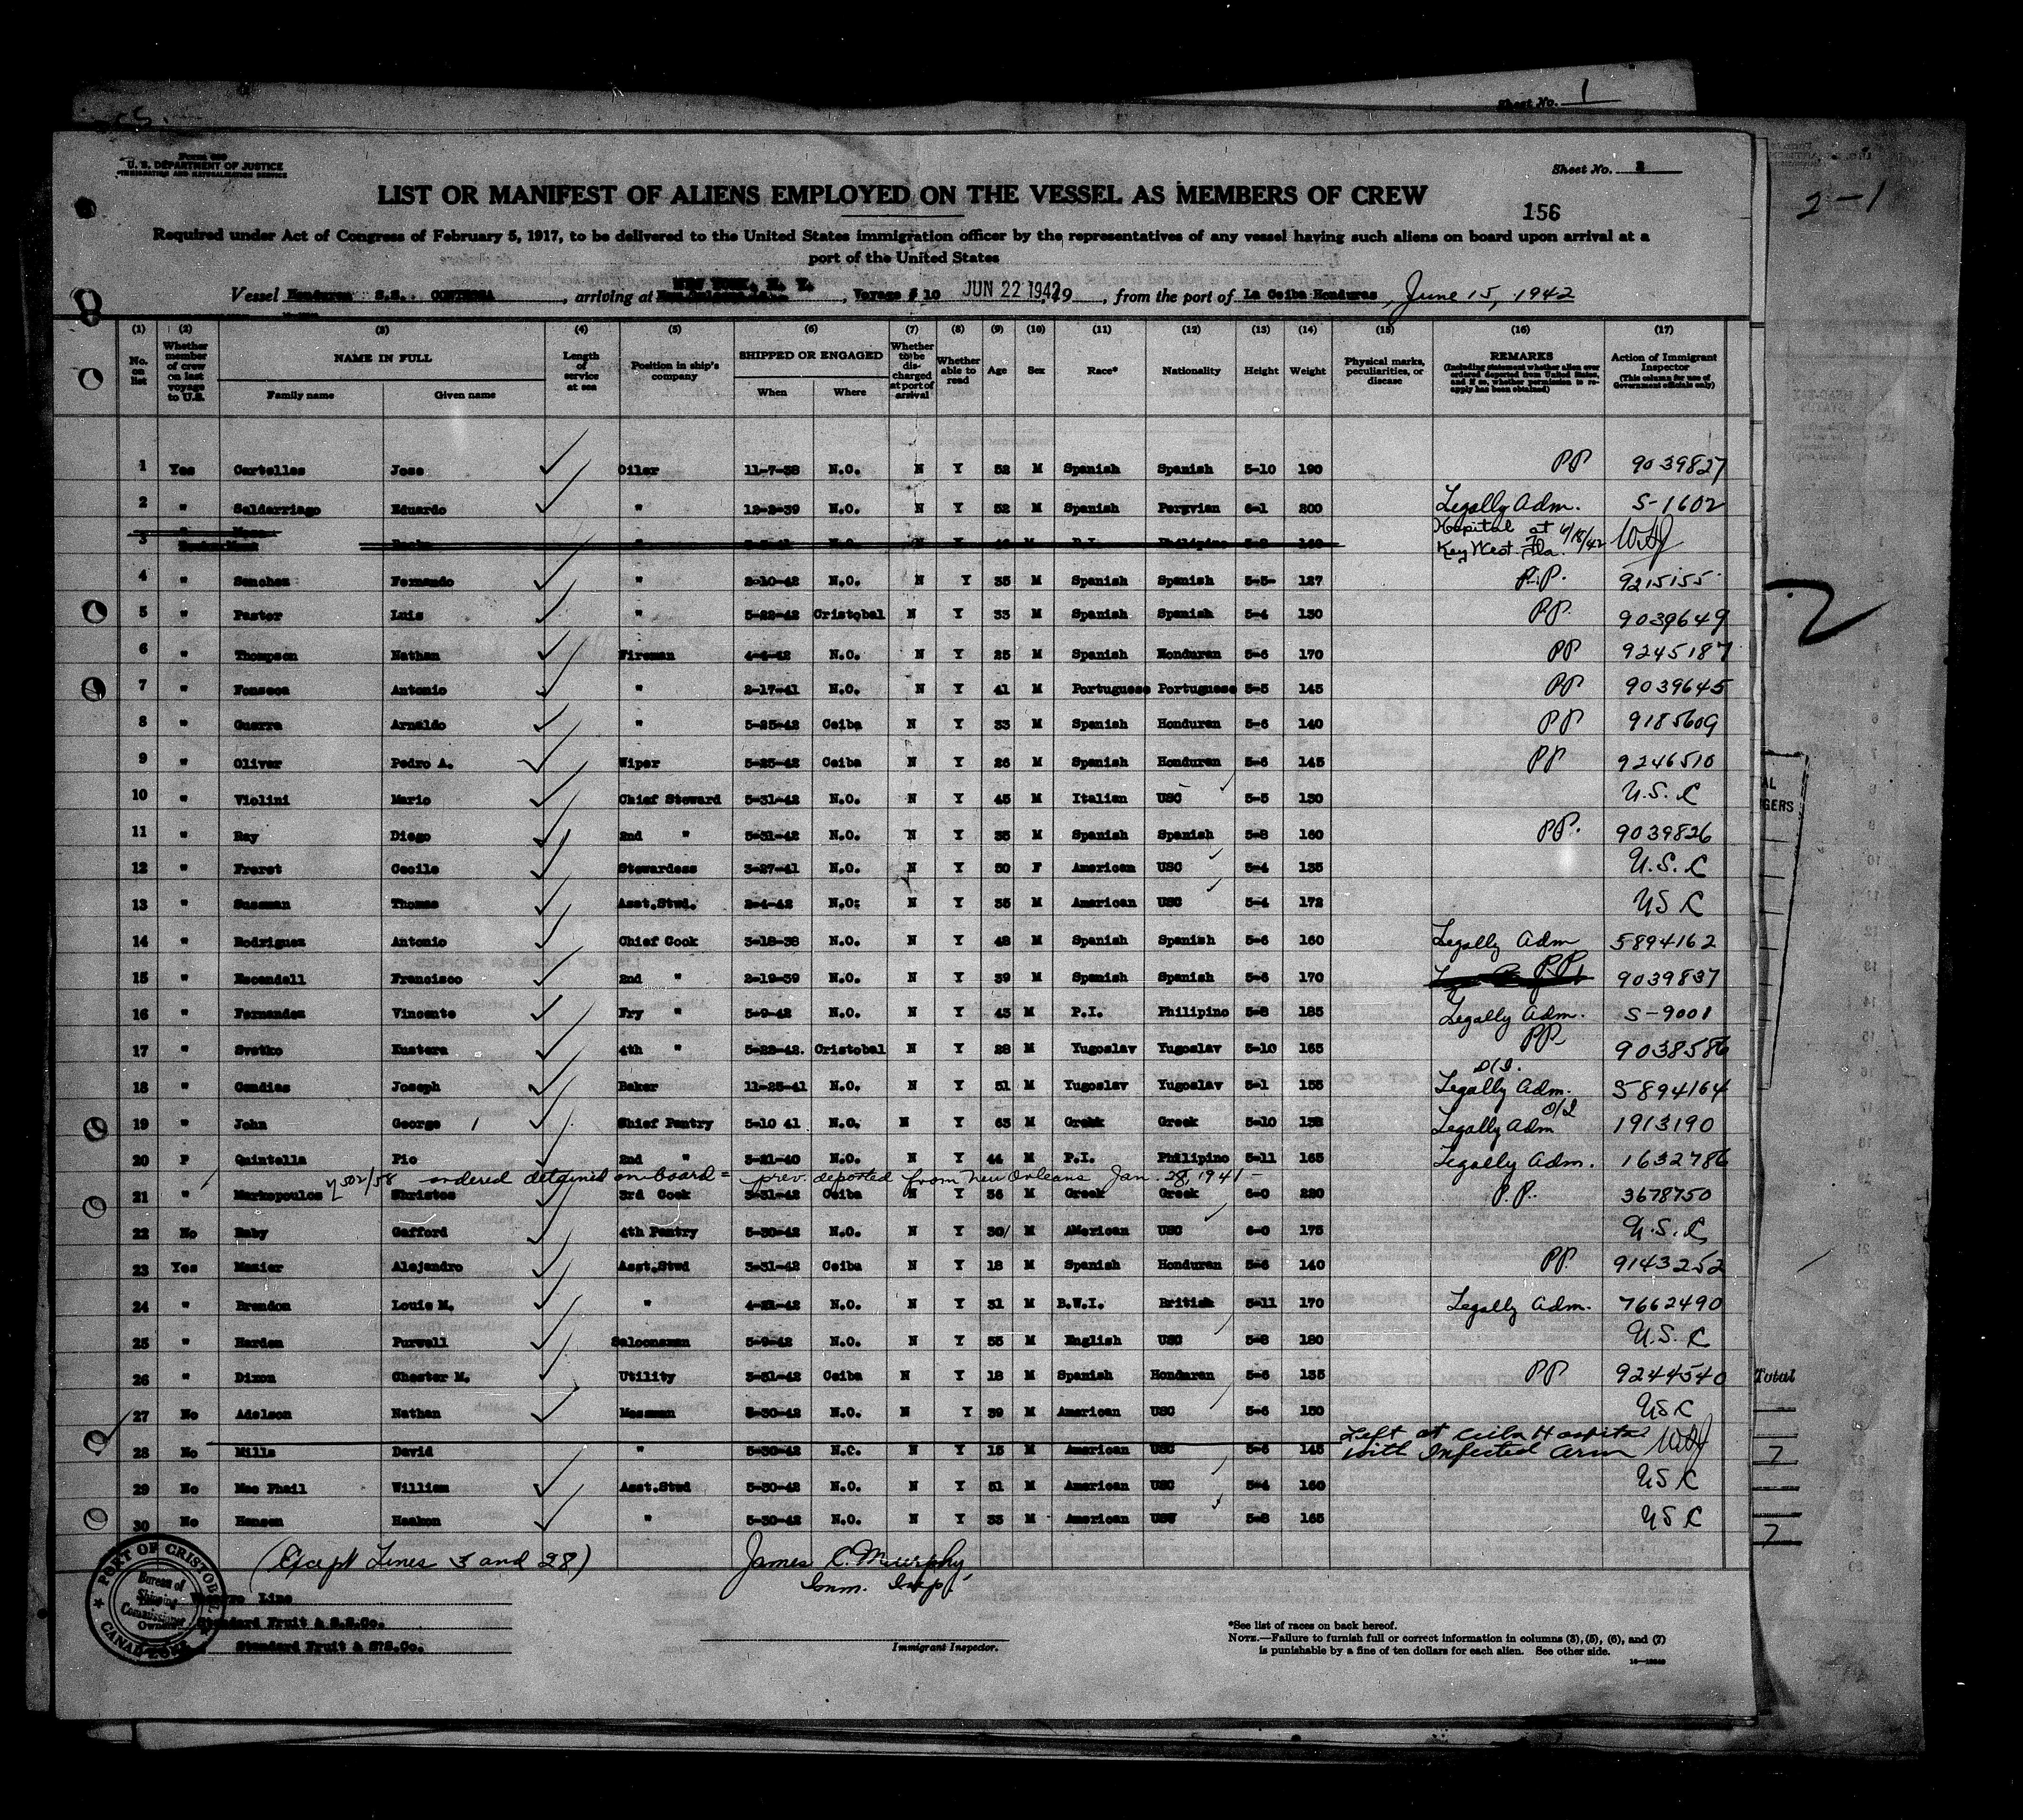 Sheet No. 1
U. S. DEPARTMENT OF JUSTICE
IMMIGRATION AND NATURALIZATION SERVICE
Sheet No. 2
2-1
LIST OR MANIFEST OF ALIENS EMPLOYED ON THE VESSEL AS MEMBERS OF CREW
156
Required under Act of Congress of February 5, 1917, to be delivered to the United States immigration officer by the representatives of any vessel having such aliens on board upon arrival at a
port of the United States
Vessel Honduran S.S. CONTESSA, arriving at NEW YORK, N. Y., Voyage # 10 JUN 22 1942, 19, from the port of La Ceiba Honduras, June 15, 1942
(1) (2) (3) (4) (5) (6) (7) (8) (9) (10) (11) (12) (13) (14) (15) (16) (17)
No. on list
Whether member of crew on last voyage to U.S.
NAME IN FULL
Family name Given name
Length of service at sea
Position in ship's company
SHIPPED OR ENGAGED
When Where
Whether to be discharged at port of arrival
Whether able to read
Age
Sex
Race*
Nationality
Height
Weight
Physical marks, peculiarities, or disease
REMARKS
(Including statement whether alien ever ordered deported from United States, and if so, whether permission to reapply has been obtained)
Action of Immigrant Inspector
(This column for use of Government officials only)
1 Yes Cartelles Jose Oiler 11-7-38 N.O. N Y 52 M Spanish Spanish 5-10 190 PP 9039827
2 " Saldarriago Eduardo " 12-2-39 N.O. N Y 52 M Spanish Peruvian 6-1 200 Legally Adm. S-1602
3 Hospital at Key West Fla. 6/18/42
4 " Sanchez Fernando " 2-10-42 N.O. N Y 35 M Spanish Spanish 5-5- 127 P.P. 9215155
5 " Pastor Luis " 5-22-42 Cristobal N Y 33 M Spanish Spanish 5-4 130 PP. 9039649
6 " Thompson Nathan Fireman 4-4-42 N.O. N Y 25 M Spanish Honduran 5-6 170 PP 9245187
7 " Fonseca Antonio " 2-17-41 N.O. N Y 41 M Portuguese Portuguese 5-5 145 PP 9039645
8 " Guerra Arnaldo " 5-25-42 Ceiba N Y 33 M Spanish Honduran 5-6 140 PP 9185609
9 " Oliver Pedro A. Wiper 5-25-42 Ceiba N Y 26 M Spanish Honduran 5-6 145 PP 9246510
10 " Violini Mario Chief Steward 5-31-42 N.O. N Y 45 M Italian USC 5-5 130 U.S.C
11 " Ray Diego 2nd " 5-31-42 N.O. N Y 35 M Spanish Spanish 5-8 160 PP. 9039826
12 " Freret Cecile Stewardess 3-27-41 N.O. N Y 50 F American USC 5-4 135 U.S.C
13 " Sussman Thomas Asst.Stwd. 2-4-42 N.O: N Y 35 M American USC 5-4 172 USC
14 " Rodriguez Antonio Chief Cook 3-18-38 N.O. N Y 48 M Spanish Spanish 5-6 160 Legally Adm 5894162
15 " Escandell Francisco 2nd " 2-19-39 N.O. N Y 39 M Spanish Spanish 5-6 170 P.P. 9039837
16 " Fernandez Vincente Fry " 5-9-42 N.O. N Y 43 M P.I. Philipino 5-8 185 Legally Adm. S-9001
17 " Svetko Kustera 4th " 5-22-42. Cristobal N Y 28 M Yugoslav Yugoslav 5-10 165 PP 9038586
18 " Candias Joseph Baker 11-25-41 N.O. N Y 51 M Yugoslav Yugoslav 5-1 155 Legally Adm. 5894164
19 " John George Chief Pantry 5-10 41 N.O. N Y 63 M Greek Greek 5-10 138 Legally Adm 1913190
20 P Quintella Pio 2nd " 3-21-40 N.O. N Y 44 M P.I. Philipino 5-11 165 Legally Adm. 1632786
ordered detained on board = prev. deported from New Orleans Jan. 28, 1941 -
21 " Markopoulos Christos 3rd Cook 3-31-42 Ceiba N Y 36 M Greek Greek 6-0 220 P.P. 3678750
22 No Raby Gafford 4th Pantry 5-30-42 N.O. N Y 30 M American USC 6-0 175 U.S.C
23 Yes Mazier Alejandro Asst.Stwd 3-31-42 Ceiba N Y 18 M Spanish Honduran 5-6 140 PP. 9143252
24 " Brendon Louie M. " 4-21-42 N.O. N Y 31 M B.W.I. British 5-11 170 Legally Adm. 7662490
25 " Harden Purwell Saloonsman 5-9-42 N.O. N Y 55 M English USC 5-8 180 U.S.C
26 " Dixon Chester M. Utility 3-31-42 Ceiba N Y 18 M Spanish Honduran 5-6 135 PP 9244540
27 No Adelson Nathan Messman 5-30-42 N.O. N Y 39 M American USC 5-6 150 USC
28 No Mills David " 5-30-42 N.O. N Y 15 M American USC 5-6 145 Left at Ceiba Hospital with Infected Arm
29 No Mac Phail William Asst.Stwd 5-30-42 N.O. N Y 51 M American USC 5-4 160 USC
30 No Hansen Haakon " 5-30-42 N.O. N Y 33 M American USC 5-8 165 USC
(Except Lines 3 and 28)
James C. Murphy
Imm. Insp.
PORT OF CRISTOBAL
Bureau of Shipping Commissioner
CANAL ZONE
Vaccaro Line
Standard Fruit & S.S.Co.
Standard Fruit & S.S.Co.
Immigrant Inspector.
*See list of races on back hereof.
NOTE.—Failure to furnish full or correct information in columns (3), (5), (6), and (7)
is punishable by a fine of ten dollars for each alien. See other side.
2
Total
7
7